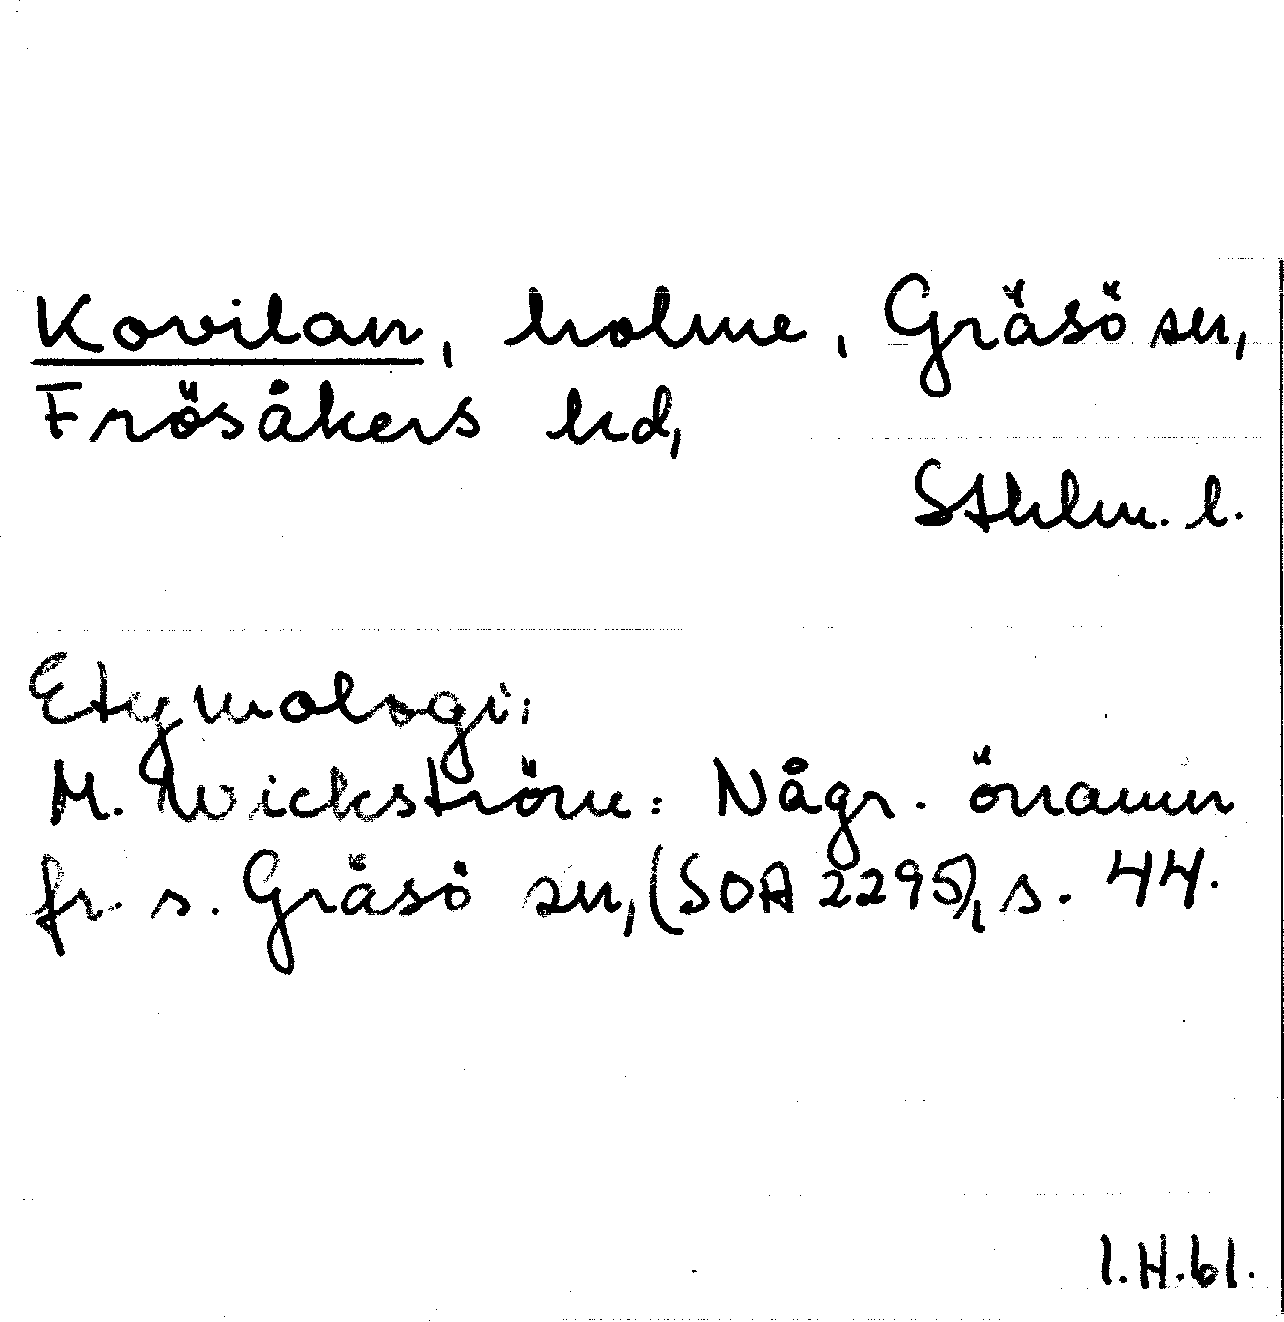 Kovilan, holme, Gräsö sn,
Frösåkers hd,
Sthlm. l.
Etymologi:
M. Wickström: Någr. önamn
fr. s. Gräsö sn, (SOA 2295), s. 44.
I.H.61.